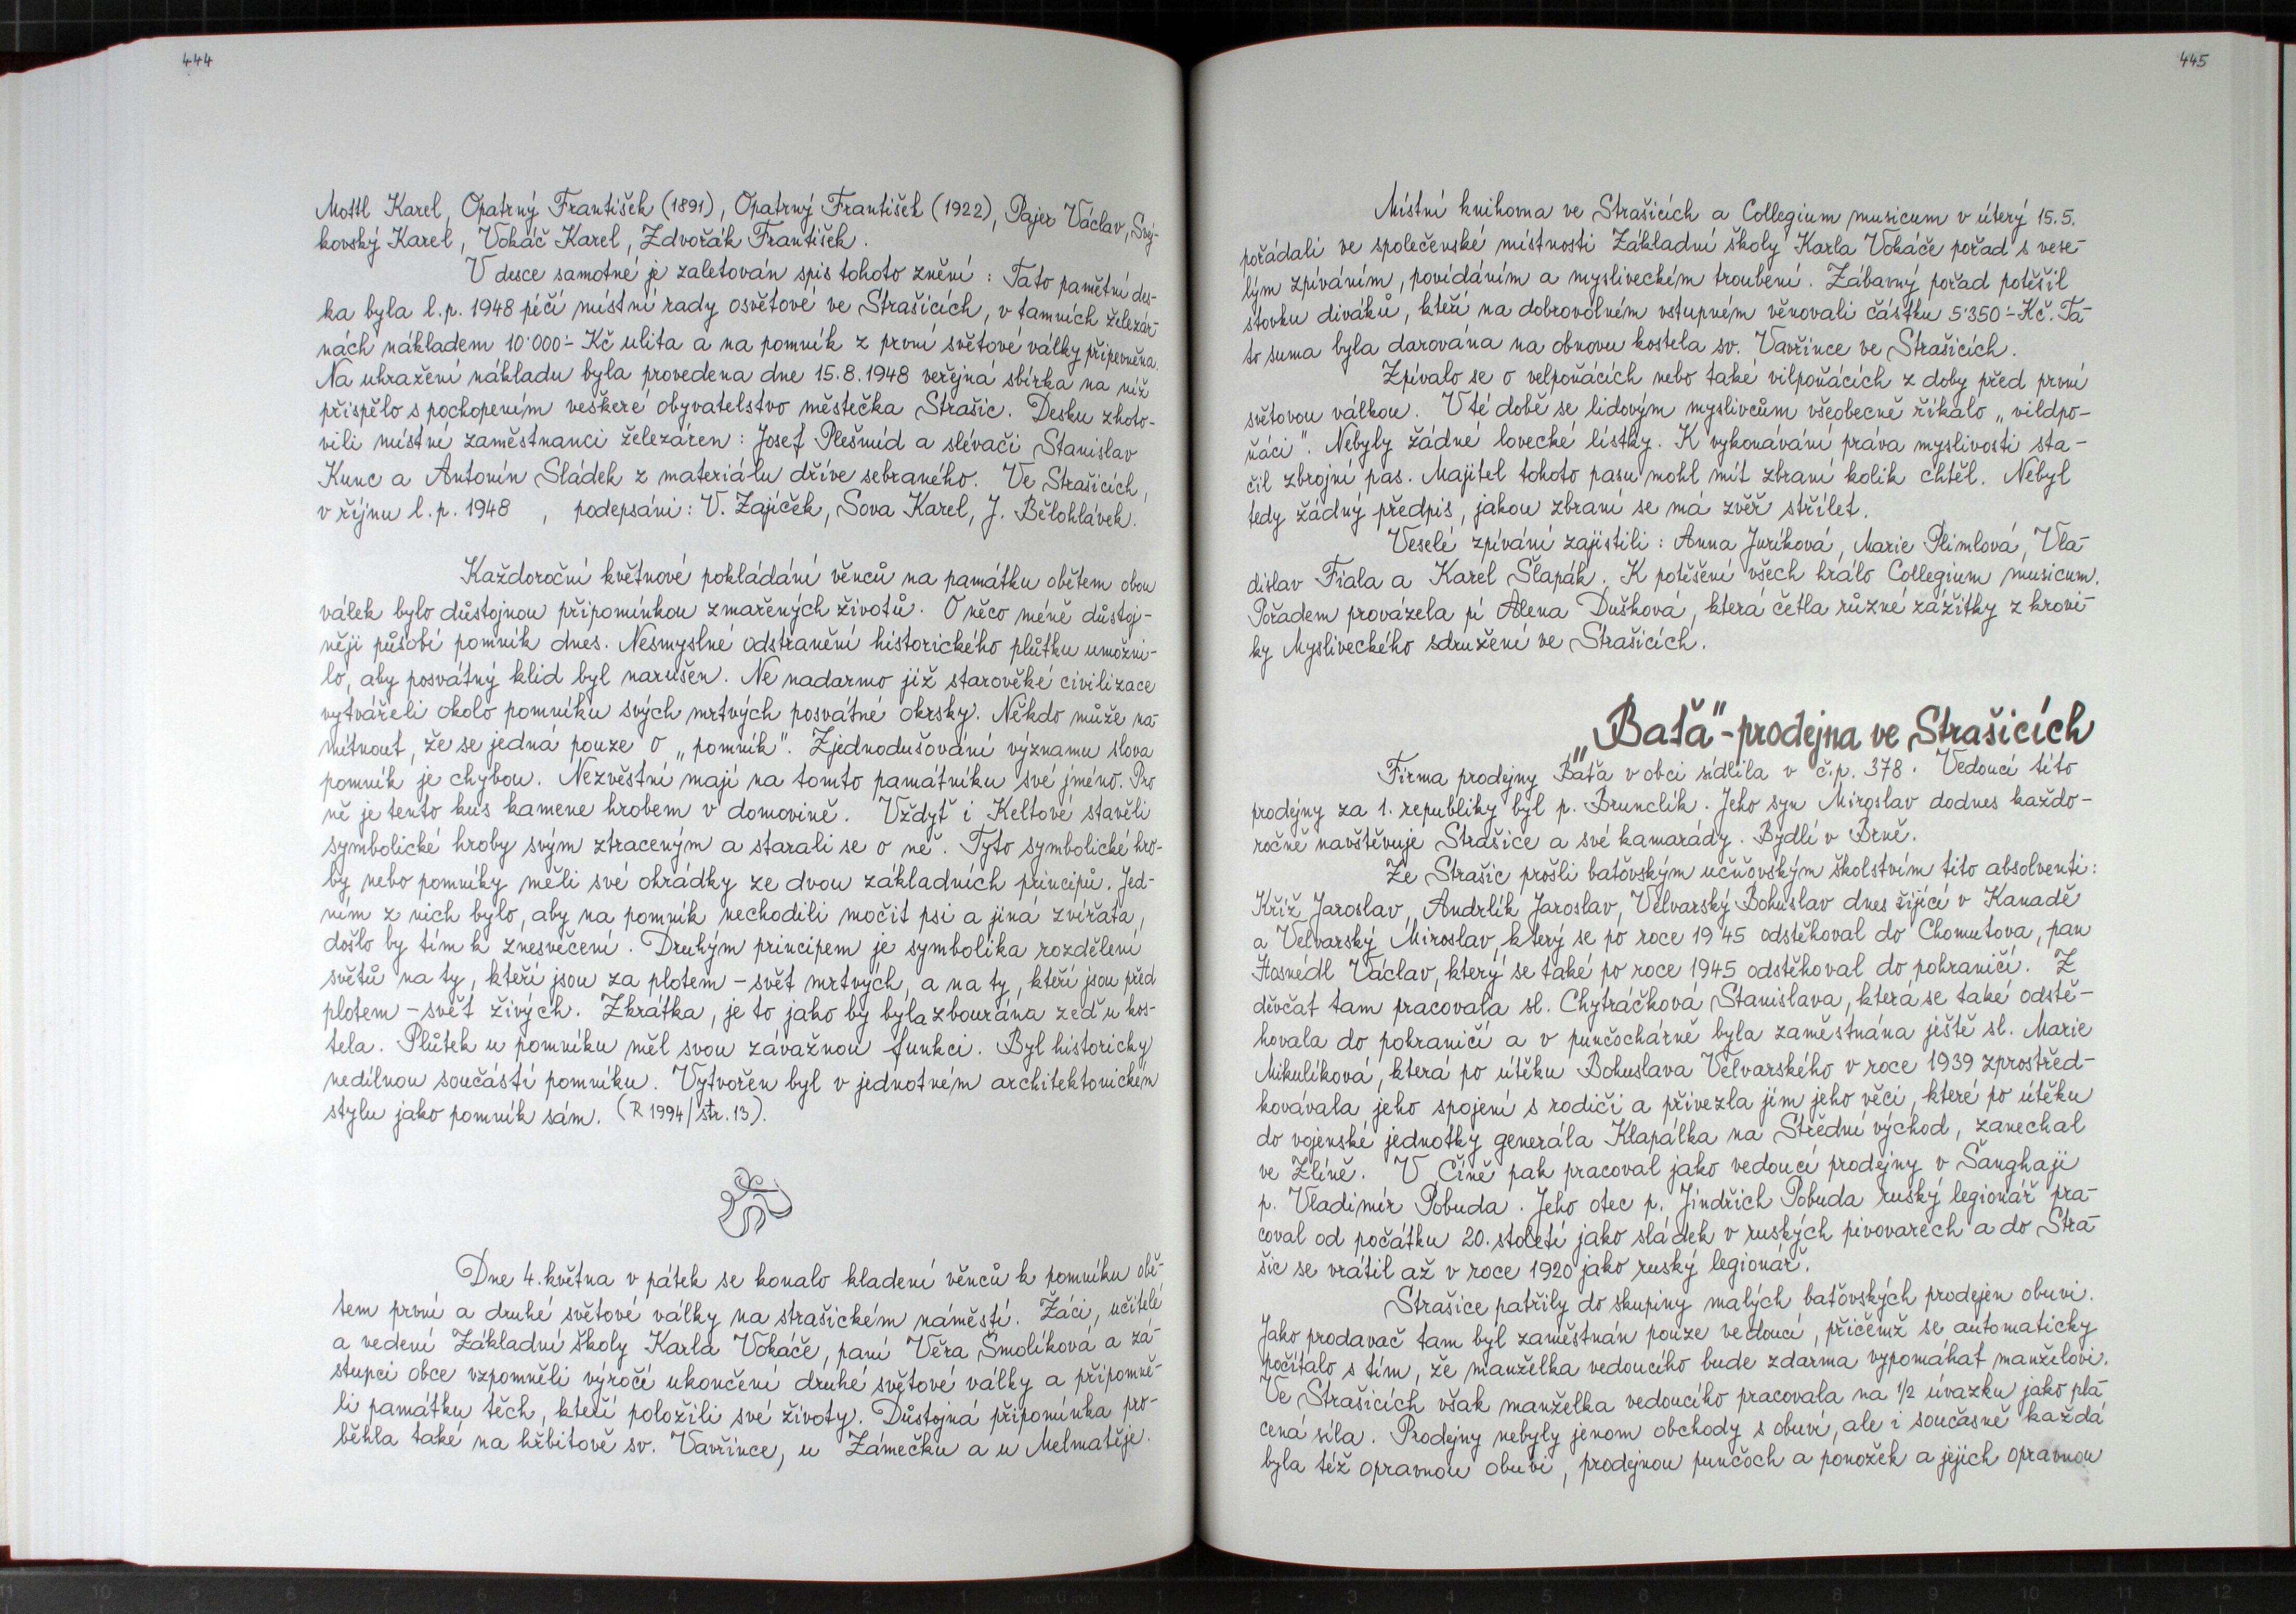 444
Mottl Karel, Opatrný František (1891), Opatrný František (1922), Pajer Václav, Švej-
kovský Karel, Vokáč Karel, Zdvořák František.
V desce samotné je zaletován spis tohoto znění: Tato pamětní des-
ka byla l.p. 1948 péčí místní rady osvětové ve Strašicích, v tamních železár-
nách nákladem 10'000'- Kč ulita a na pomník z první světové války připevněna.
Na uhražení nákladu byla provedena dne 15.8.1948 veřejná sbírka na níž
přispělo s pochopením veškeré obyvatelstvo městečka Strašic. Desku zhoto-
vili místní zaměstnanci železáren: Josef Plešmíd a slévači Stanislav
Kunc a Antonín Sládek z materiálu dříve sebraného. Ve Strašicích,
v říjnu l.p. 1948 , podepsáni: V. Zajíček, Sova Karel, J. Bělohlávek.
Každoroční květnové pokládání věnců na památku obětem obou
válek bylo důstojnou připomínkou zmařených životů. O něco méně důstoj-
něji působí pomník dnes. Nesmyslné odstranění historického plůtku umožni-
lo, aby posvátný klid byl narušen. Ne nadarmo již starověké civilizace
vytvářeli okolo pomníku svých mrtvých posvátné okrsky. Někdo může na-
mítnout, že se jedná pouze o „pomník". Zjednodušování významu slova
pomník je chybou. Nezvěstní mají na tomto památníku své jméno. Pro
ně je tento kus kamene hrobem v domovině. Vždyť i Keltové stavěli
symbolické hroby svým ztraceným a starali se o ně. Tyto symbolické hro-
by nebo pomníky měli své ohrádky ze dvou základních principů. Jed-
ním z nich bylo, aby na pomník nechodili močit psi a jiná zvířata,
došlo by tím k znesvěcení. Druhým principem je symbolika rozdělení
světů na ty, kteří jsou za plotem - svět mrtvých, a na ty, kteří jsou před
plotem - svět živých. Zkrátka, je to jako by byla zbourána zeď u kos-
tela. Plůtek u pomníku měl svou závažnou funkci. Byl historicky
nedílnou součástí pomníku. Vytvořen byl v jednotném architektonickém
stylu jako pomník sám. (R 1994/str.13).
Dne 4. května v pátek se konalo kladení věnců k pomníku obě-
tem první a druhé světové války na strašickém náměstí. Žáci, učitelé
a vedení Základní školy Karla Vokáče, paní Věra Smolíková a zá-
stupci obce vzpomněli výročí ukončení druhé světové války a připomně-
li památku těch, kteří položili své životy. Důstojná připomínka pro-
běhla také na hřbitově sv. Vavřince, u Zámečku a u Melmatěje.
445
Místní knihovna ve Strašicích a Collegium musicum v úterý 15.5.
pořádali ve společenské místnosti Základní školy Karla Vokáče pořad s vese-
lým zpíváním, povídáním a mysliveckém troubení. Zábavný pořad potěšil
stovku diváků, kteří na dobrovolném vstupném věnovali částku 5'350'- Kč. Ta-
to suma byla darována na obnovu kostela sv. Vavřince ve Strašicích.
Zpívalo se o velpoňácích nebo také vilpoňácích z doby před první
světovou válkou. V té době se lidovým myslivcům všeobecně říkalo „vildpo-
ňáci". Nebyly žádné lovecké lístky. K vykonávání práva myslivosti sta-
čil zbrojní pas. Majitel tohoto pasu mohl mít zbraní kolik chtěl. Nebyl
tedy žádný předpis, jakou zbraní se má zvěř střílet.
Veselé zpívání zajistili: Anna Juríková, Marie Plimlová, Vla-
dislav Fiala a Karel Šlapák. K potěšení všech hrálo Collegium musicum.
Pořadem provázela pí Alena Dušková, která četla různé zážitky z kroni-
ky Mysliveckého sdružení ve Strašicích.
„Baťa"-prodejna ve Strašicích
Firma prodejny Baťa v obci sídlila v č.p. 378. Vedoucí této
prodejny za 1. republiky byl p. Brunclík. Jeho syn Miroslav dodnes každo-
ročně navštěvuje Strašice a své kamarády. Bydlí v Brně.
Ze Strašic prošli baťovským učňovským školstvím tito absolventi:
Kříž Jaroslav, Andrlík Jaroslav, Velvarský Bohuslav dnes žijící v Kanadě
a Velvarský Miroslav, který se po roce 1945 odstěhoval do Chomutova, pan
Hosnedl Václav, který se také po roce 1945 odstěhoval do pohraničí. Z
děvčat tam pracovala sl. Chytráčková Stanislava, která se také odstě-
hovala do pohraničí a v punčochárně byla zaměstnána ještě sl. Marie
Mikulíková, která po útěku Bohuslava Velvarského v roce 1939 zprostřed-
kovávala jeho spojení s rodiči a přivezla jim jeho věci, které po útěku
do vojenské jednotky generála Klapálka na Střední východ, zanechal
ve Zlíně. V Číně pak pracoval jako vedoucí prodejny v Šanghaji
p. Vladimír Pobuda. Jeho otec p. Jindřich Pobuda ruský legionář pra-
coval od počátku 20. století jako sládek v ruských pivovarech a do Stra-
šic se vrátil až v roce 1920 jako ruský legionář.
Strašice patřily do skupiny malých baťovských prodejen obuvi.
Jako prodavač tam byl zaměstnán pouze vedoucí, přičemž se automaticky
počítalo s tím, že manželka vedoucího bude zdarma vypomáhat manželovi.
Ve Strašicích však manželka vedoucího pracovala na 1/2 úvazku jako pla-
cená síla. Prodejny nebyly jenom obchody s obuví, ale i současně každá
byla též opravnou obuvi, prodejnou punčoch a ponožek a jejich opravnou